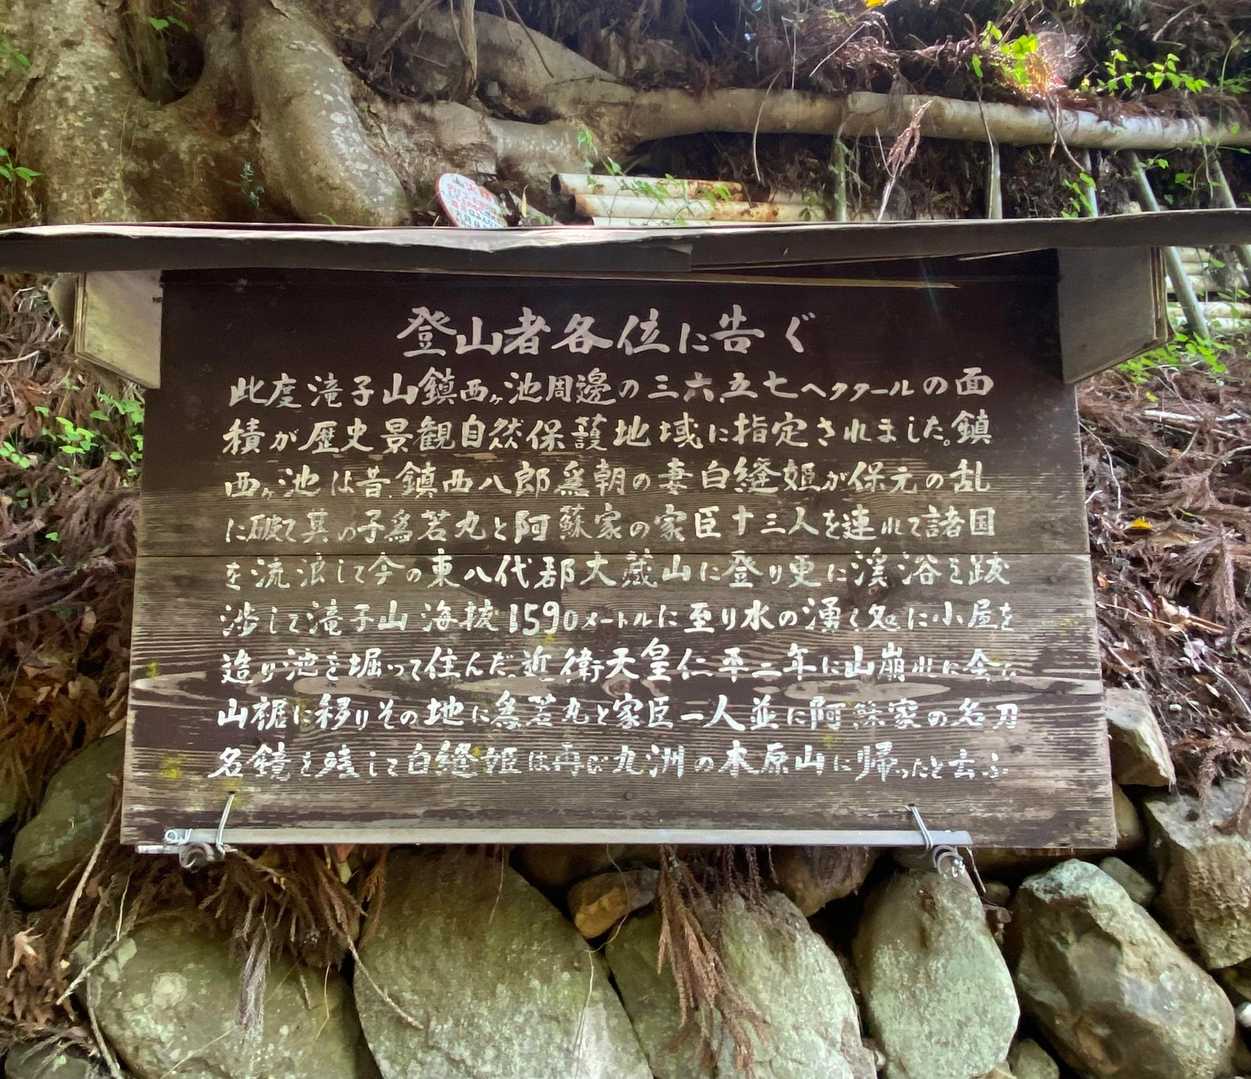 登山者各位に告ぐ
此度滝子山鎮西ヶ池周邊の三六.五七ヘクタールの面
積が歴史景観自然保護地域に指定されました。鎮
西ヶ池は昔、鎮西八郎為朝の妻白縫姫が保元の乱
に破て其の子為若丸と阿蘇家の家臣十三人を連れて諸国
を流浪して今の東八代郡大蔵山に登り更に渓谷を跋
渉して滝子山海抜1590メートルに至り水の湧く処に小屋を
造り池を堀って住んだ.近衛天皇仁平二年に山崩れに会い
山裾に移りその地に為若丸と家臣一人並に阿蘇家の名刀
名鏡を残して白縫姫は再び九洲の木原山に帰ったと云ふ